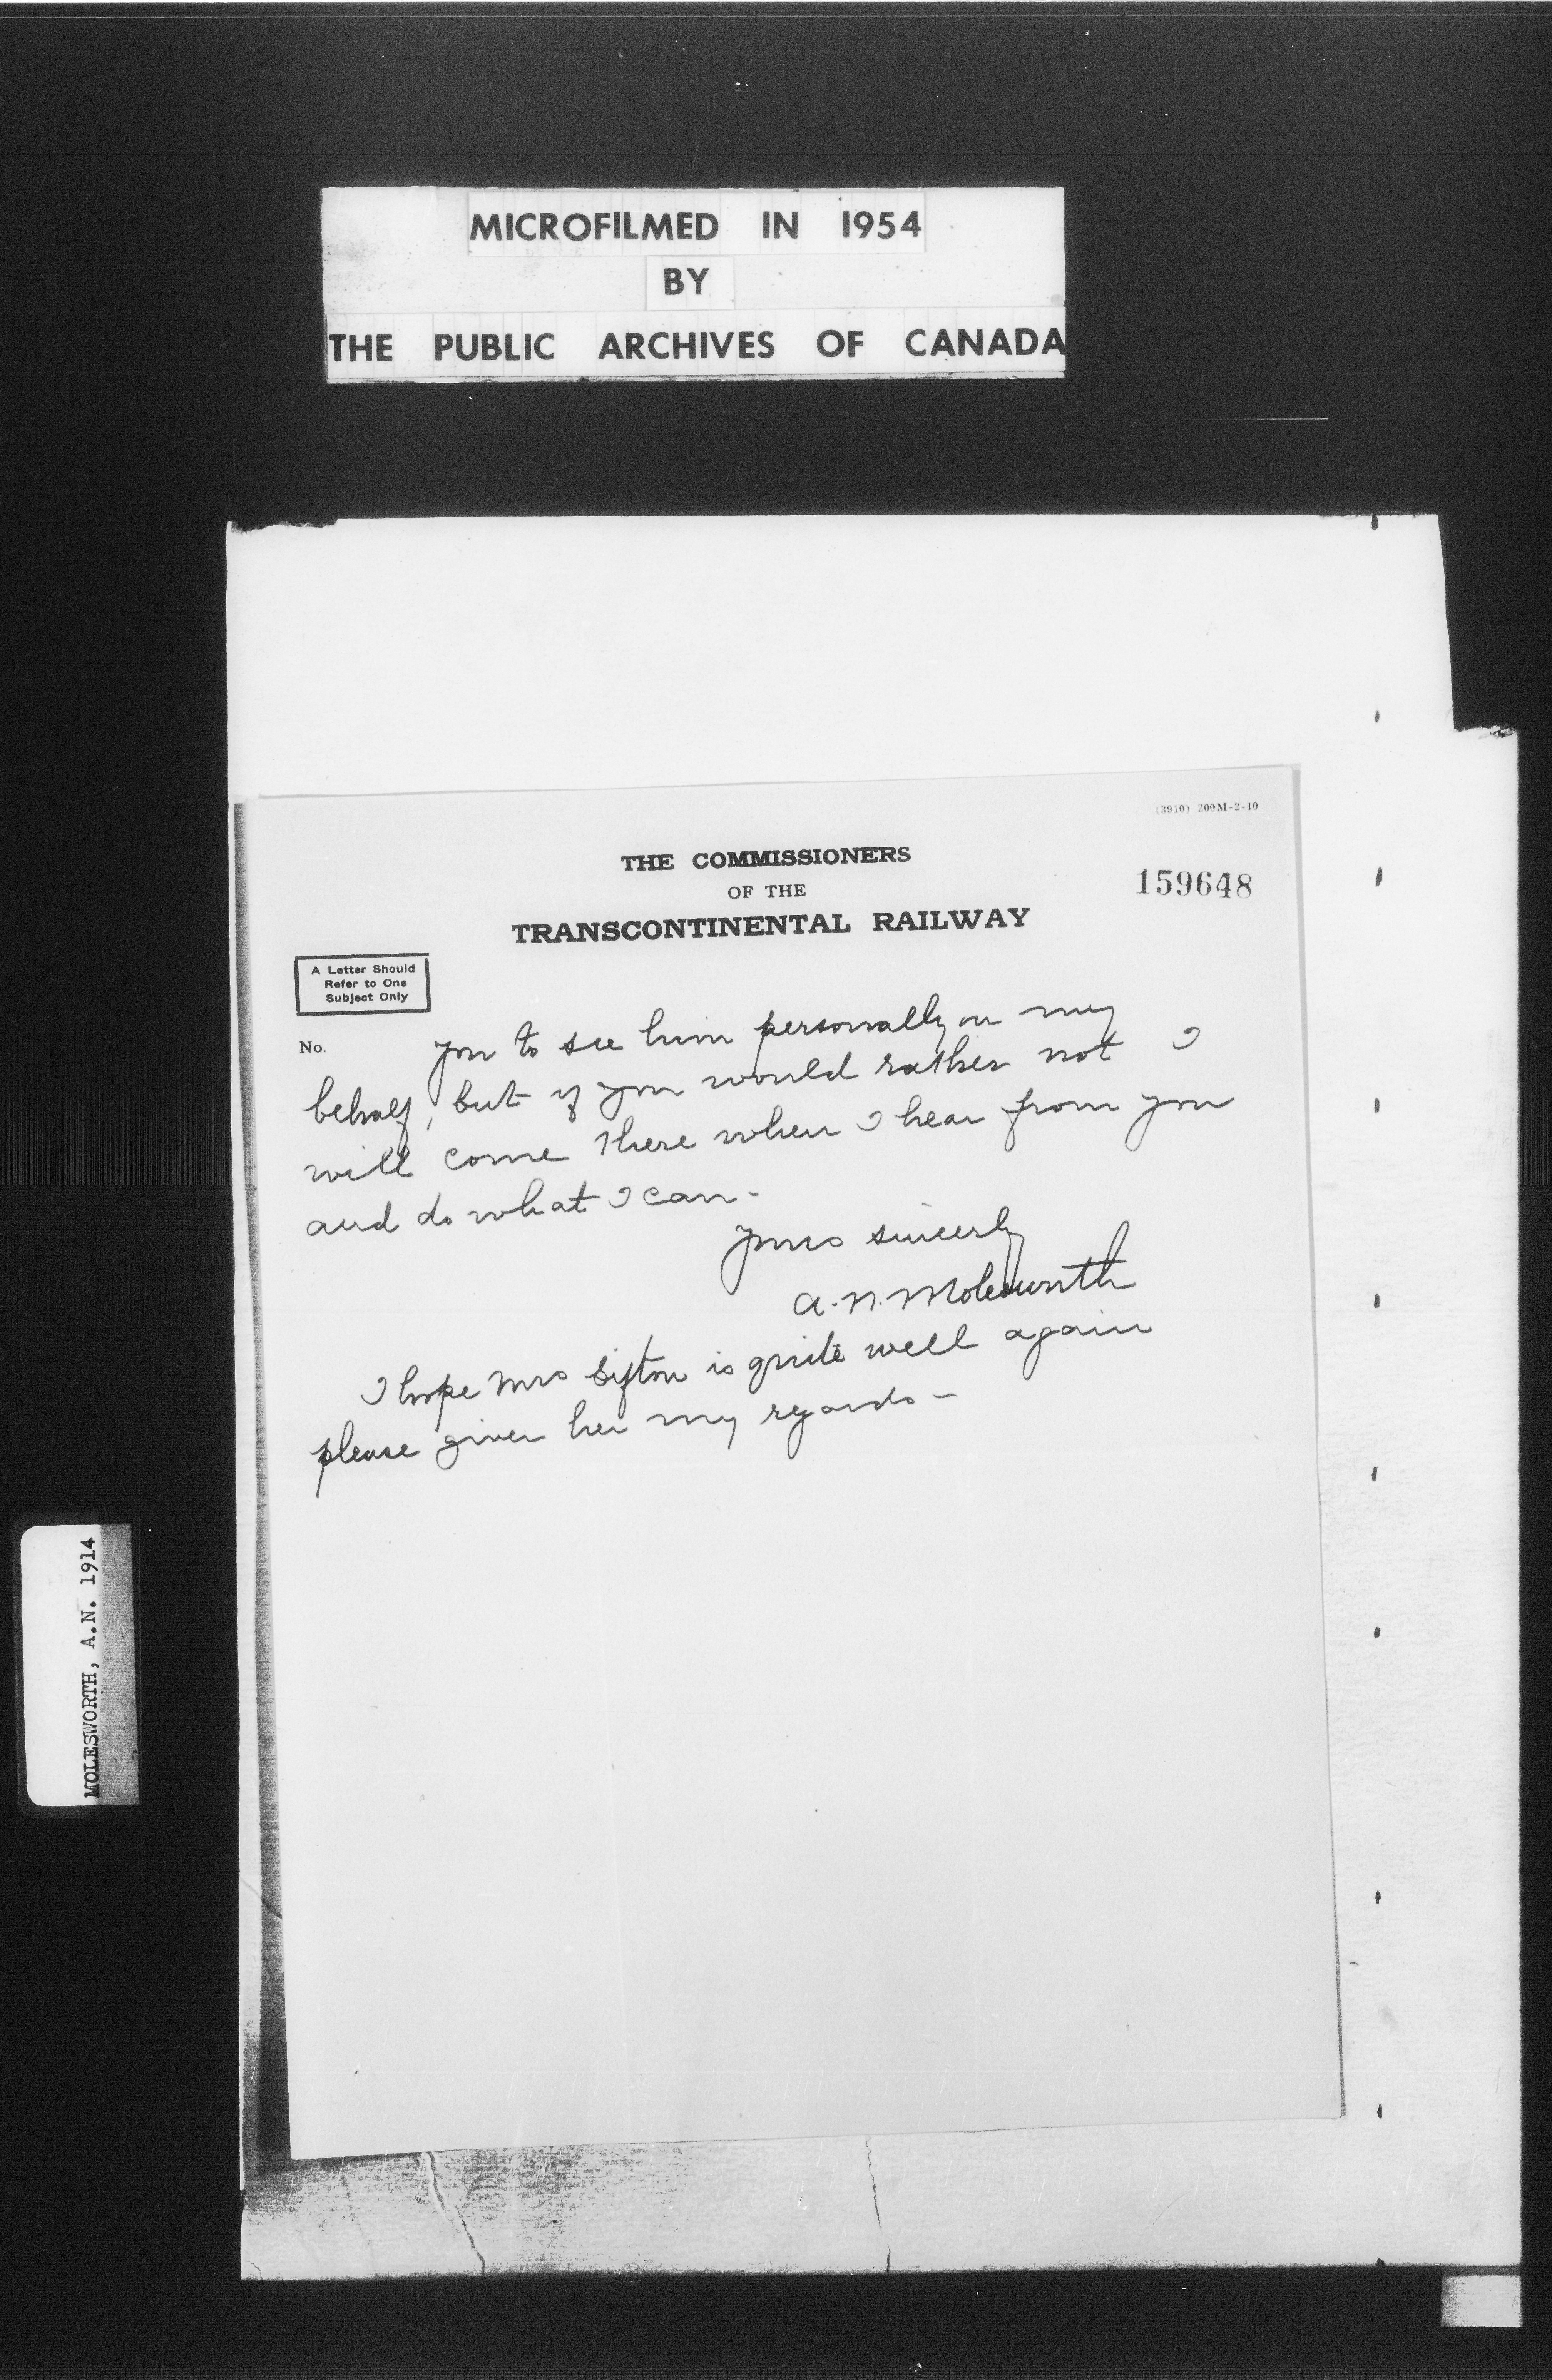 MICROFILMED IN 1954
BY
THE PUBLIC ARCHIVES OF CANADA
(3910) 200M-2-10
THE COMMISSIONERS
OF THE
TRANSCONTINENTAL RAILWAY
159648
A Letter Should
Refer to One
Subject Only
No.
you to see him personally on my
behalf, but if you would rather not I
will come there when I hear from you
and do what I can -
Yours sincerly
A. N. Molesworth
I hope Mrs Sifton is quite well again
please given her my regards -
MOLESWORTH, A.N. 1914